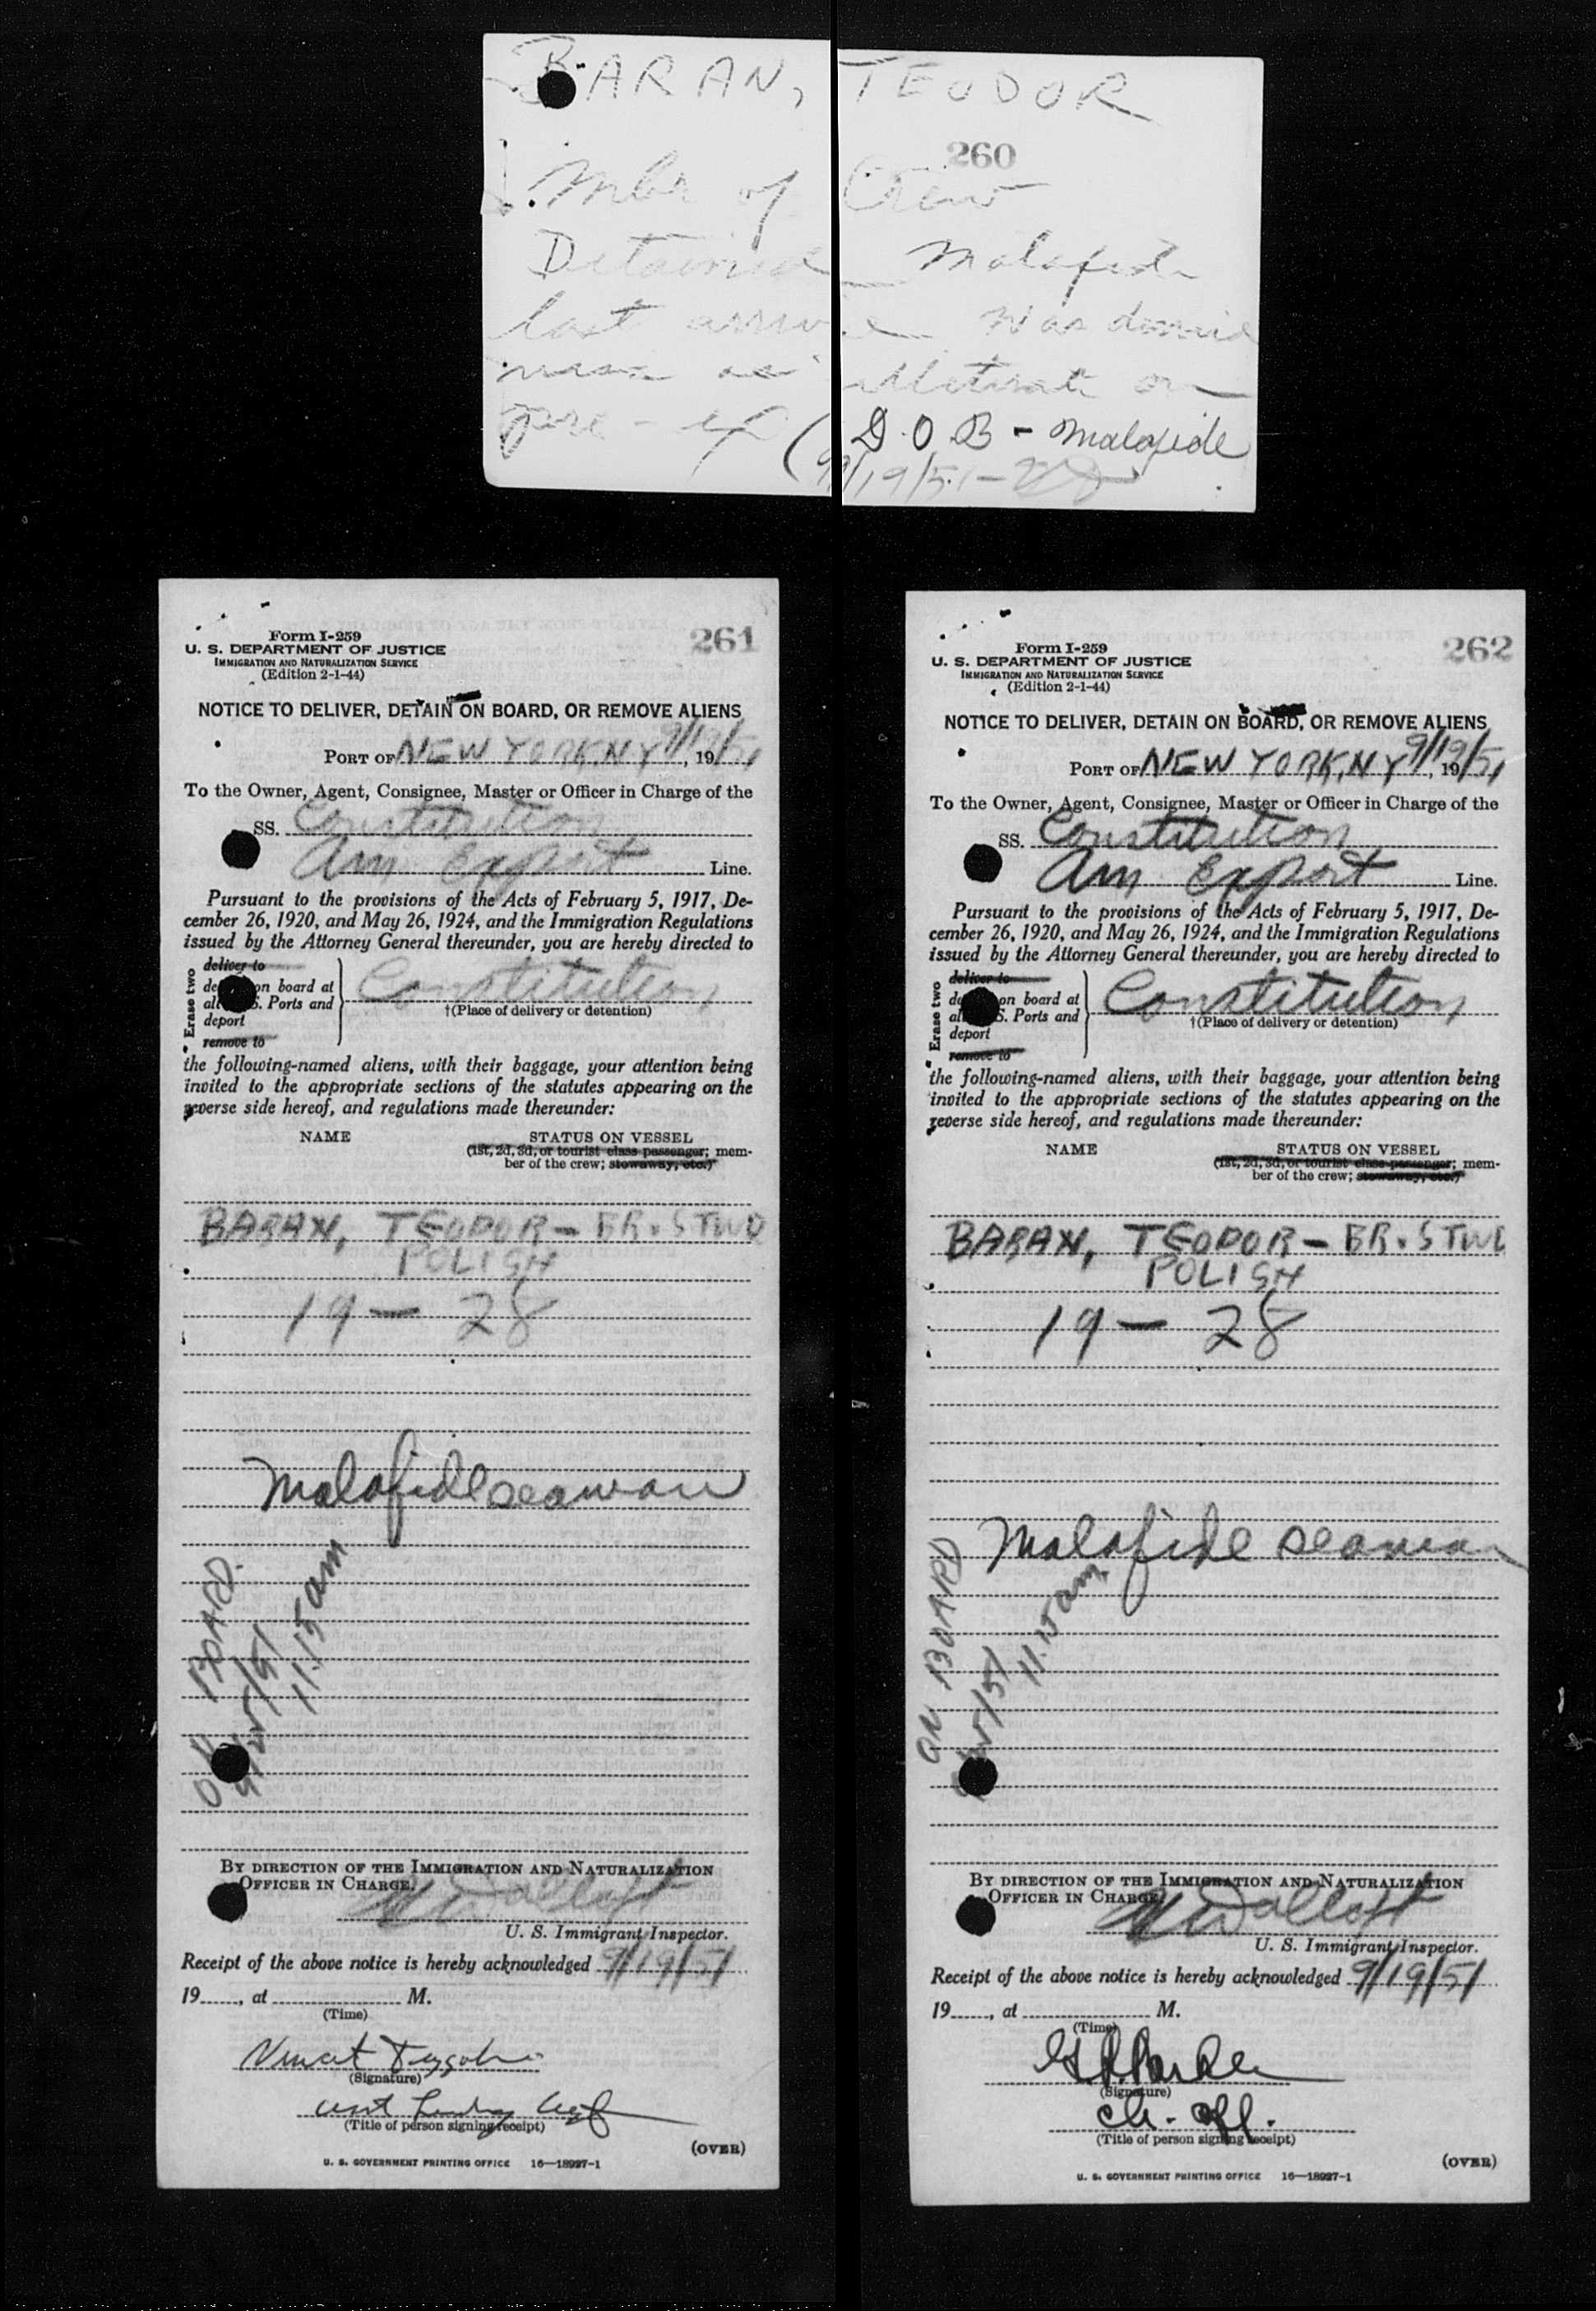 BARAN, TEODOR
260
Mbr of Crew
Detained Malafide
last arrive Was denied
illiterate on
pre-ex (D.O.B - Malafide
9/19/51-
Form I-259
261
U. S. DEPARTMENT OF JUSTICE
IMMIGRATION AND NATURALIZATION SERVICE
(Edition 2-1-44)
NOTICE TO DELIVER, DETAIN ON BOARD, OR REMOVE ALIENS
PORT OF NEW YORK, NY 9/19, 19/51
To the Owner, Agent, Consignee, Master or Officer in Charge of the
SS. Constitution
Am Export Line.
Pursuant to the provisions of the Acts of February 5, 1917, De-
cember 26, 1920, and May 26, 1924, and the Immigration Regulations
issued by the Attorney General thereunder, you are hereby directed to
* Erase two
deliver to
on board at
S. Ports and
deport
remove to
Constitution
†(Place of delivery or detention)
the following-named aliens, with their baggage, your attention being
invited to the appropriate sections of the statutes appearing on the
reverse side hereof, and regulations made thereunder:
NAME STATUS ON VESSEL
(1st, 2d, 3d, or tourist class passenger; mem-
ber of the crew; stowaway, etc.)
BARAN, TEODOR - BR. STWD
POLISH
19 - 28
Malafide seaman
ON BOARD.
9/25/51
11:15 am
BY DIRECTION OF THE IMMIGRATION AND NATURALIZATION
OFFICER IN CHARGE.
U. S. Immigrant Inspector.
Receipt of the above notice is hereby acknowledged 9/19/51
19......, at .................... M.
(Time)
Vincent
(Signature)
(Title of person signing receipt)
(OVER)
U. S. GOVERNMENT PRINTING OFFICE 16—18927-1
Form I-259
262
U. S. DEPARTMENT OF JUSTICE
IMMIGRATION AND NATURALIZATION SERVICE
(Edition 2-1-44)
NOTICE TO DELIVER, DETAIN ON BOARD, OR REMOVE ALIENS
PORT OF NEW YORK, NY 9/19, 19/51
To the Owner, Agent, Consignee, Master or Officer in Charge of the
SS. Constitution
Am Export Line.
Pursuant to the provisions of the Acts of February 5, 1917, De-
cember 26, 1920, and May 26, 1924, and the Immigration Regulations
issued by the Attorney General thereunder, you are hereby directed to
* Erase two
deliver to
on board at
S. Ports and
deport
remove to
Constitution
†(Place of delivery or detention)
the following-named aliens, with their baggage, your attention being
invited to the appropriate sections of the statutes appearing on the
reverse side hereof, and regulations made thereunder:
NAME STATUS ON VESSEL
(1st, 2d, 3d, or tourist class passenger; mem-
ber of the crew; stowaway, etc.)
BARAN, TEODOR - BR. STWD
POLISH
19 - 28
Malafide seaman
ON BOARD
9/25/51
11:15 am
BY DIRECTION OF THE IMMIGRATION AND NATURALIZATION
OFFICER IN CHARGE.
U. S. Immigrant Inspector.
Receipt of the above notice is hereby acknowledged 9/19/51
19......, at .................... M.
(Time)
(Signature)
ch. off.
(Title of person signing receipt)
(OVER)
U. S. GOVERNMENT PRINTING OFFICE 16—18927-1